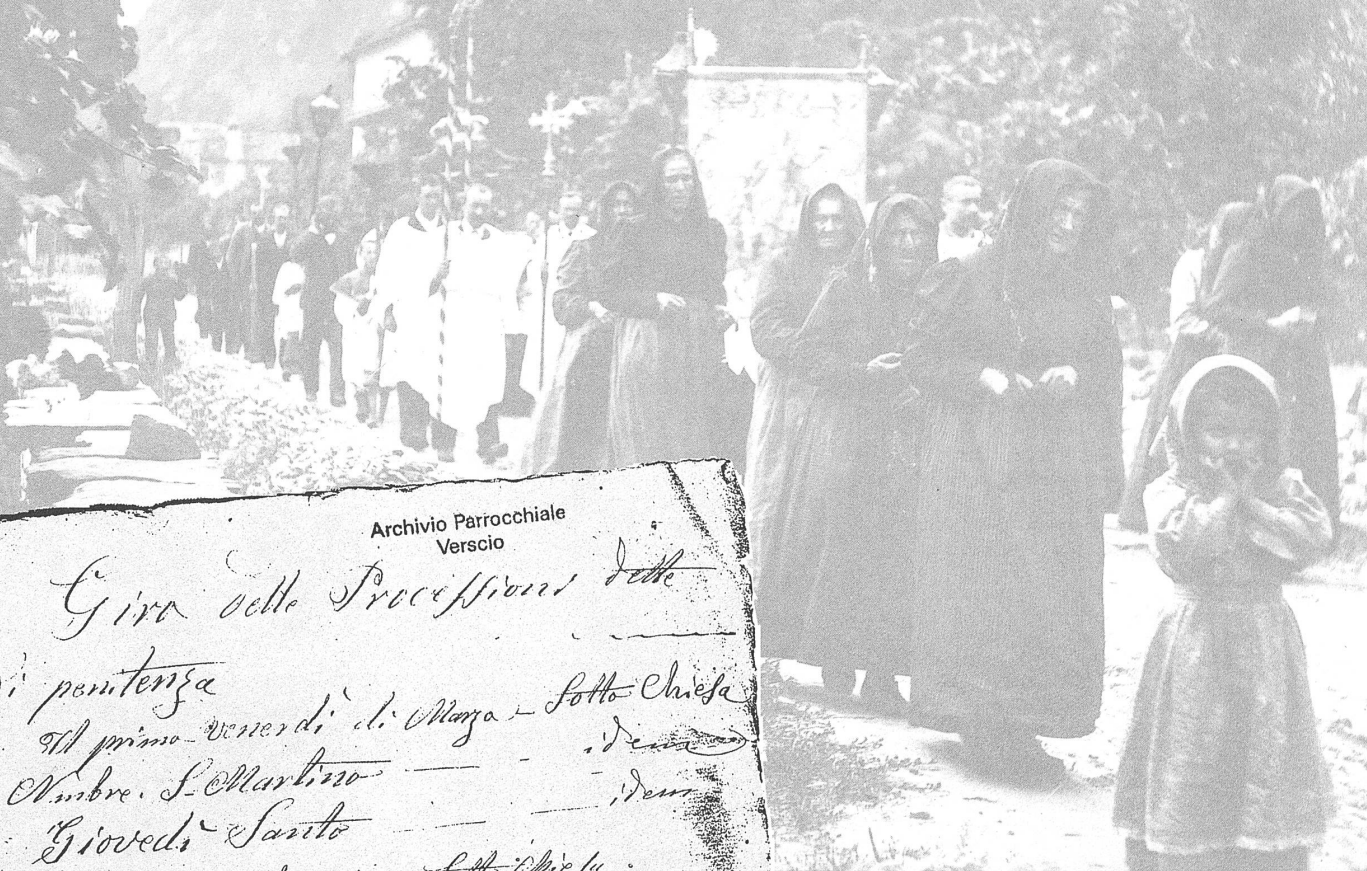 Archivio Parrocchiale
Verscio
Giro delle Processioni dette
di penitenza
Il primo venerdì di Marzo - Sotto Chiesa
Nmbre. S. Martino idem
Giovedì Santo idem
Sotto Chiesa